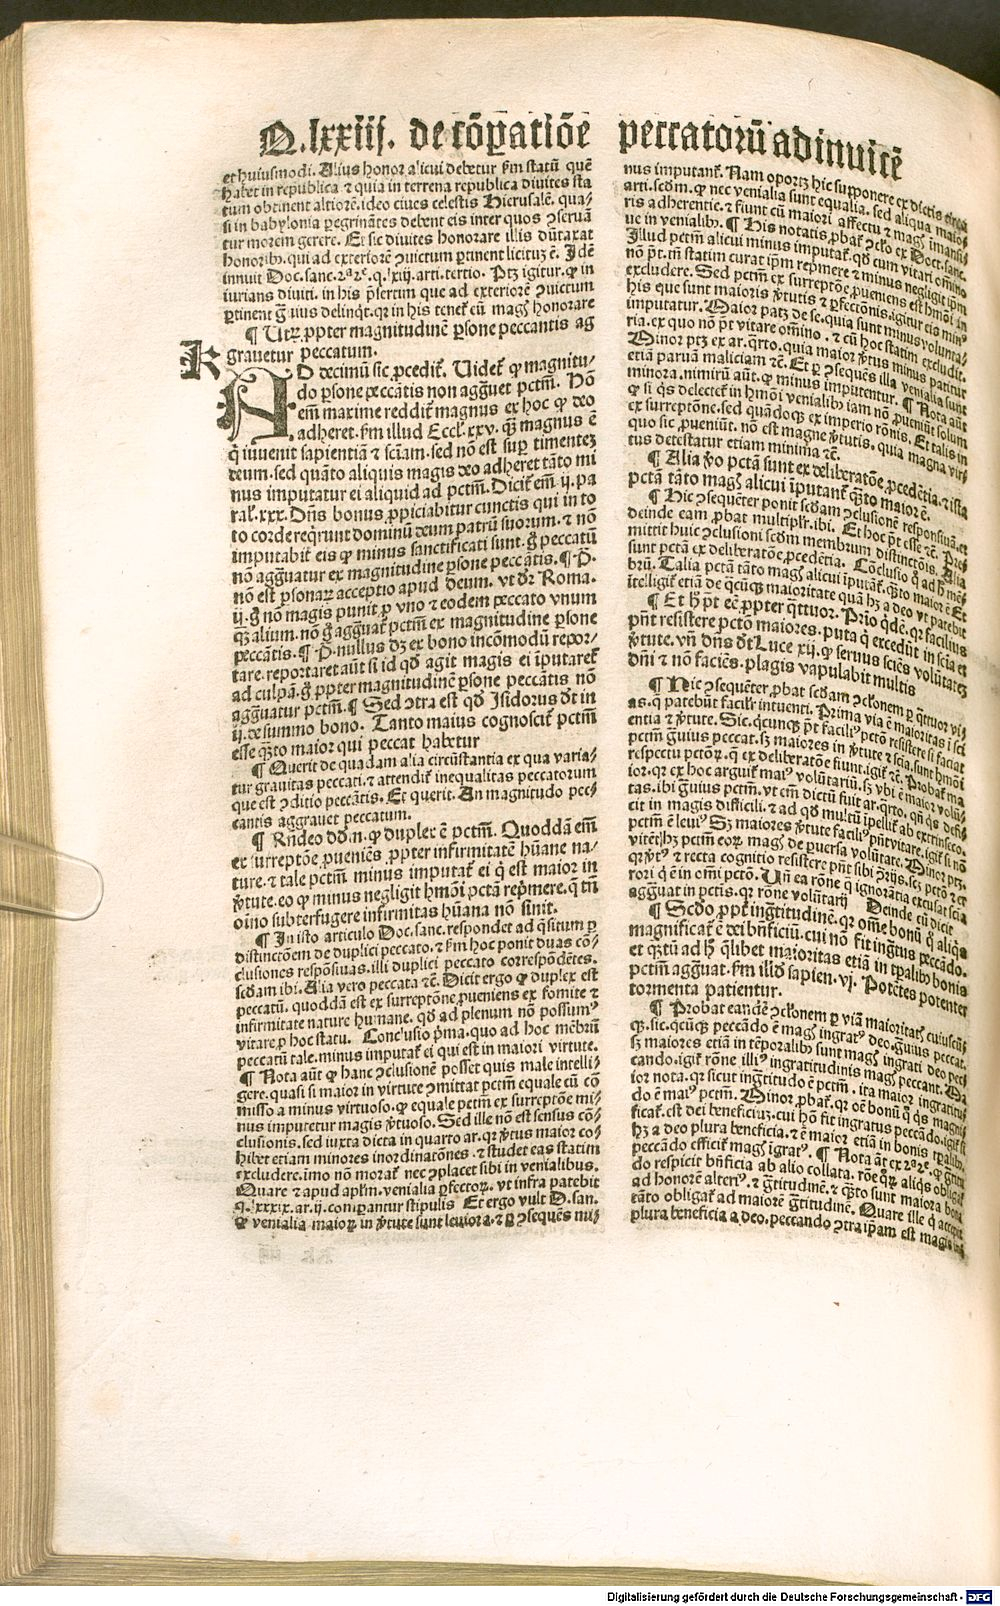 Q.lxxiij. de cōꝑatiōe peccatorū adinuicē
et huiusmodi. Alius honor alicui debetur ẜm statū quē
habet in republica ⁊ quia in terrena republica diuites sta
tum obtinent altiorē. ideo ciues celestis Hierusalē. qua⸗
si in babylonia ꝑegrinātes debent eis inter quos ꝯseruā
tur morem gerere. Et sic diuites honorare illis dūtaxat
honorib⁹. qui ad exteriorē ꝯuictum ꝑtinent licituꝫ ē. Idē
innuit Doc. sanc. 2ª2ᵉ. q. lxiij. arti. tertio. Ptꝫ igitur. ꝙ in
iurians diuiti. in his p̄sertim que ad exteriorē ꝯuictum
ꝑtinent gͣuius delinqt̄. qꝛ in his tenet̄ cū magꝭ honorare
¶ Utꝝ ꝓpter magnitudinē ꝑsone peccantis ag
grauetur peccatum.
K
AD decimū sic ꝓcedit̄. Uidet̄ ꝙ magnitu⸗
do ꝑsone peccātis non aggͣuet pctm̄. Hō
em̄ maxime reddit̄ magnus ex hoc ꝙ deo
adheret. ẜm illud Eccl̄. xxv. Qͣꝫ magnus ē
q̇ inuenit sapientiā ⁊ sciam̄. sed nō est suꝑ timenteꝫ
deum. sed quāto aliquis magis deo adheret tāto mi
nus imputatur ei aliquid ad pctm̄. Dicit̄ em̄ .ij. pa
ral̄. xxx. Dn̄s bonus ꝓpiciabitur cunctis qui in to
to corde reqrunt dominū deum patrū suorum. ⁊ nō
imputabit̄ eis ꝙ minus sanctificati sunt. gͦ peccatū
nō aggͣuatur ex magnitudine ꝑsone peccātis. ¶ P̄.
nō est ꝑsonaꝝ acceptio apud deum. vt dr̄ Roma.
ij. gͦ nō magis punit ꝓ vno ⁊ eodem peccato vnum
qͣꝫ alium. nō gͦ aggͣuat̄ pctm̄ ex magnitudine ꝑsone
peccātis. ¶ P̄. nullus dꝫ ex bono incōmodū repor⸗
tare. reportaret aūt si id qd̄ agit magis ei īputaret̄
ad culpā. gͦ ꝓpter magnitudinē ꝑsone peccātis nō
aggͣuatur pctm̄. ¶ Sed ꝯtra est qd̄ Isidorus dt̄ in
ij. de summo bono. Tanto maius cognoscit̄ pctm̄
esse qͣꝫto maior qui peccat habetur
¶ Querit de quadam alia circūstantia ex qua varia⸗
tur grauitas peccati. ⁊ attendit̄ inequalitas peccatorum
que est ꝯditio peccātis. Et querit. An magnitudo pec⸗
cantis aggrauet peccatum.
¶ Rn̄deo dd̄.n. ꝙ dupler ē pctm̄. Quoddā em̄
ex surreptōe ꝓueniēs ꝓpter infirmitatē hūane na⸗
ture. ⁊ tale pctm̄ minus imputat̄ ei q̇ est maior in
ꝟtute. eo ꝙ minus negligit hmōi pctā rep̄mere. q̄ tn̄
oīno subterfugere infirmitas hūana nō sinit.
¶ In isto articulo Doc. sanc. respondet ad qͣsitum ꝑ
distinctōem de duplici peccato. ⁊ ẜm hoc ponit duas cō⸗
clusiones respōsiuas. illi duplici peccato correspōdētes.
scd̄am ibi. Alia vero peccata ⁊c̄. Dicit ergo ꝙ duplex est
peccatū. quoddā est ex surreptōne ꝓueniens ex fomite ⁊
infirmitate nature humane. qd̄ ad plenum nō possum⁹
vitare ꝓ hoc statu. Conclusio p̄ma. quo ad hoc mēbrū
peccatū tale. minus imputat̄ ei qui est in maiori virtute.
¶ Nota aūt ꝙ hanc ꝯclusionē posset quis male intelli⸗
gere. quasi si maior in virtute ꝯmittat pctm̄ equale cū cō
misso a minus virtuoso. ꝙ equale pctm̄ ex surreptōe mi⸗
nus imputetur magis ꝟtuoso. Sed ille nō est sensus cō⸗
clusionis. sed iuxta dicta in quarto ar. qꝛ ꝟtus maior co⸗
hibet etiam minores inordinatōnes. ⁊ studet eas statim
excludere. imo nō morat̄ nec ꝯplacet sibi in venialibus.
Quare ⁊ apud apl̄m. venialia ꝑfectoꝝ. vt infra patebit
q. lxxxix. ar. ij. comparantur stipulis Et ergo vult D. san.
ꝙ venialia maioꝝ in ꝟtute sunt leuiora. ⁊ ꝑ ꝯsequēs mi⸗
nus imputant̄. Nam oportꝫ hic supponere ex dictis circa
arti. scd̄m. ꝙ nec venialia sunt equalia. sed aliqua maio⸗
ris adherentie. ⁊ fiunt cū maiori affectu ⁊ magꝭ imansi⸗
ue in venialib⁹. ¶ His notatis, ꝓbat̄ ꝯclō ex Doc. sanc.
Illud pctm̄ alicui minus imputat̄. qd̄ cum vitari om̄ino
nō pt̄. tn̄ statim curat ip̄m rep̄mere ⁊ minus negligit ip̄m
excludere. Sed pctm̄ ex surreptōe ꝓueniens est hmōi in
his que sunt maioris ꝟtutis ⁊ ꝑfectōnis. igitur eis min⁹
imputatur. Maior patꝫ de se. quia sunt minus volunta⸗
ria. ex quo nō pt̄ vitare om̄ino. ⁊ cū hoc statim excludit.
Minor ptꝫ ex ar. q̄rto. quia maior ꝟtus minus patitur
etiā paruam maliciam ⁊c̄. Et ꝑ ꝯsequēs illa venialia sunt
minora. nimirū aūt. ꝙ minus imputentur. ¶ Nota aūt
ꝙ si q̇s delectet̄ in hmōi venialib⁹ iam nō ꝓueniūt solum
ex surreptōne. sed quādoqꝫ ex imperio rōnis. Et talis in
quo sic ꝓueniūt. nō est magne ꝟtutis. quia magna vir⸗
tus detestatur etiam minima ⁊c̄.
¶ Alia ꝟo pctā sunt ex deliberatōe ꝓcedētia. ⁊ ista
pctā tāto magꝭ alicui īputant̄ qͣꝫto maior ē.
¶ Hic ꝯsequēter ponit scd̄am ꝯclusionē responsiuā. et
deinde eam ꝓbat multipl̄r. ibi. Et hoc pt̄ esse ⁊c̄. Pre⸗
mittit huic ꝯclusioni scd̄m membrum distinctōis. Alia
sunt pctā ex deliberatōe ꝓcedētia. Cōclusio q̇ ad h̄ mē⸗
brū. Talia pctā tāto magꝭ alicui īputat̄. qͣꝫto maior ē Et
ītelligit̄ etiā de qͣcūqꝫ maioritate quā hꝫ a deo vt patebit
¶ Et h̄ pt̄ eē ꝓpter qͣttuor. Prio q̇dē. qꝛ facilius
pn̄t resistere pctō maiores. puta q̇ excedūt in scia et
ꝟtute. vn̄ dn̄s dt̄ Luce xij. ꝙ seruus sciēs volūtateꝫ
dn̄i ⁊ nō faciēs. plagis vapulabit multis
¶ Hic ꝯsequēter ꝓbat scd̄am ꝯclōnem ꝑ qͣttuor vi⸗
as. q̄ patebūt facilr̄ intuenti. Prima via ē maioritas ī sci
entia ⁊ ꝟtute. Sic. qͥcunqꝫ pt̄ facili⁹ pctō resistere si faciat
pctm̄ gͣuius peccat. sꝫ maiores in ꝟtute ⁊ scia. sunt hmōi
respectu pctōꝝ. q̄ ex deliberatōe fiunt. igit̄ ⁊c̄. Probat̄ ma
ior. qꝛ ex hoc arguit̄ mai⁹ volūtariū. sꝫ vbi ē maior volū⸗
tas. ibi gͣuius pctm̄. vt em̄ dictū fuit ar. q̄rto. qn̄ q̇s defi⸗
cit in magis difficili. ⁊ ad qd̄ multū īpellit̄ ab extrinseco.
pctm̄ ē leui⁹ Sꝫ maiores ꝟtute facili⁹ pn̄t vitare. igit̄ si nō
vitēt hꝫ pctm̄ eoꝝ magꝭ de ꝑuersa volūtate. Minor ptꝫ.
qꝛ ꝟt⁹ ⁊ recta cognitio resistere pn̄t sibi ꝯrijs. scꝫ pctō ⁊ er
rori q̇ ē in om̄i pctō. Un̄ ea rōne q̇ ignorātia excusat scia
aggͣuat in pctis. qꝛ rōne volūtarij Deinde cū dicit
¶ Scd̄o ꝓpt̄ ingͣtitudinē. qꝛ om̄e bonū q̇ aliq̇s
magnificat̄ ē dei bn̄ficiū. cui nō fit ingͣtus peccādo.
et qͣꝫtū ad h̄ q̄libet maioritas etiā in tꝑalib⁹ bonis
pctm̄ aggͣuat. ẜm illd̄ sapien. vj. Potētes potenter
tormenta patientur.
¶ Probat eandē ꝯclōnem ꝑ viā maioritatꝭ cuiuscūqꝫ.
sic. qͥcūqꝫ peccādo ē magꝭ ingrat⁹ deo. gͣuius peccat.
sꝫ maiores etiā in tēporalib⁹ sunt magꝭ ingrati deo pec⸗
cando. igit̄ rōne illi⁹ ingratitudinis magꝭ peccant. Ma
ior nota. qꝛ sicut ingͣtitudo ē pctm̄. ita maior ingratitu
do ē mai⁹ pctm̄. Minor ꝓbat̄. qꝛ oē bonū q̇ q̇s magni
ficat̄. est dei beneficiuꝫ. cui hō fit ingratus peccādo. igit̄ si
hꝫ a deo plura beneficia. ⁊ ē maior etiā in bonis tꝑalib⁹.
peccādo efficit̄ magꝭ īgrat⁹. ¶ Nota aūt ex 2ª2ᵉ. ꝙ gͣtitu
do respicit bn̄ficia ab alio collata. rōe quoꝝ aliq̇s obligat̄
ad honorē alteri⁹. ⁊ gͣtitudinē. ⁊ qͣꝫto sunt maiora bona
tāto obligat̄ ad maiorē gͣtitudinē. Quare ille q̇ accepit
plura beneficia a deo. peccando ꝯtra ip̄am est magis
Digitalisierung gefördert durch die Deutsche Forschungsgemeinschaft - DFG